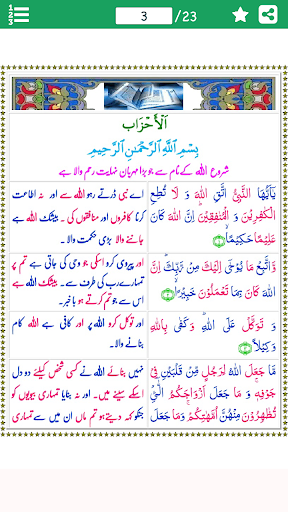 1
2
3
3
/23
اَلْاَحْزَاب
بِسْمِ اللّٰهِ الرَّحْمٰنِ الرَّحِيْمِ
شروع اللہ کے نام سے جو بڑا مہربان نہایت رحم والا ہے
يٰۤاَيُّهَا النَّبِىُّ اتَّقِ اللّٰهَ وَ لَا تُطِعِ
الْكٰفِرِيْنَ وَ الْمُنٰفِقِيْنَ اِنَّ اللّٰهَ كَانَ
عَلِيْمًا حَكِيْمًا ۙ ﴿۱﴾
اے نبی ڈرتے رہو اللہ سے اور نہ اطاعت
کرنا کافروں اور منافقوں کی۔ بیشک اللہ ہے
جاننے والا بڑی حکمت والا۔
وَّاتَّبِعْ مَا يُوْحٰٓى اِلَيْكَ مِنْ رَّبِّكَ ۗ اِنَّ
اللّٰهَ كَانَ بِمَا تَعْمَلُوْنَ خَبِيْرًا ۙ ﴿۲﴾
اور پیروی کرو اسکی جو وحی کی جاتی ہے تم پر
تمہارے رب کی طرف سے۔ بیشک اللہ ہے
اس سے جو تم کرتے ہو باخبر۔
وَّ تَوَكَّلْ عَلَى اللّٰهِ ۗ وَ كَفٰى بِاللّٰهِ
وَكِيْلًا ﴿۳﴾
اور توکل کرو اللہ پر اور کافی ہے اللہ کام
بنانے والا۔
مَا جَعَلَ اللّٰهُ لِرَجُلٍ مِّنْ قَلْبَيْنِ فِىْ
جَوْفِهٖ ۚ وَ مَا جَعَلَ اَزْوَاجَكُمُ الّٰٓـئِْ
تُظٰهِرُوْنَ مِنْهُنَّ اُمَّهٰتِكُمْ ۚ وَمَا جَعَلَ
نہیں بنائے اللہ نے کسی شخص کیلئے دو دل
اسکے سینے میں۔ اور نہ بنایا تمہاری بیویوں کو
جنکو کہہ دیتے ہو تم ماں ان میں سے تمہاری